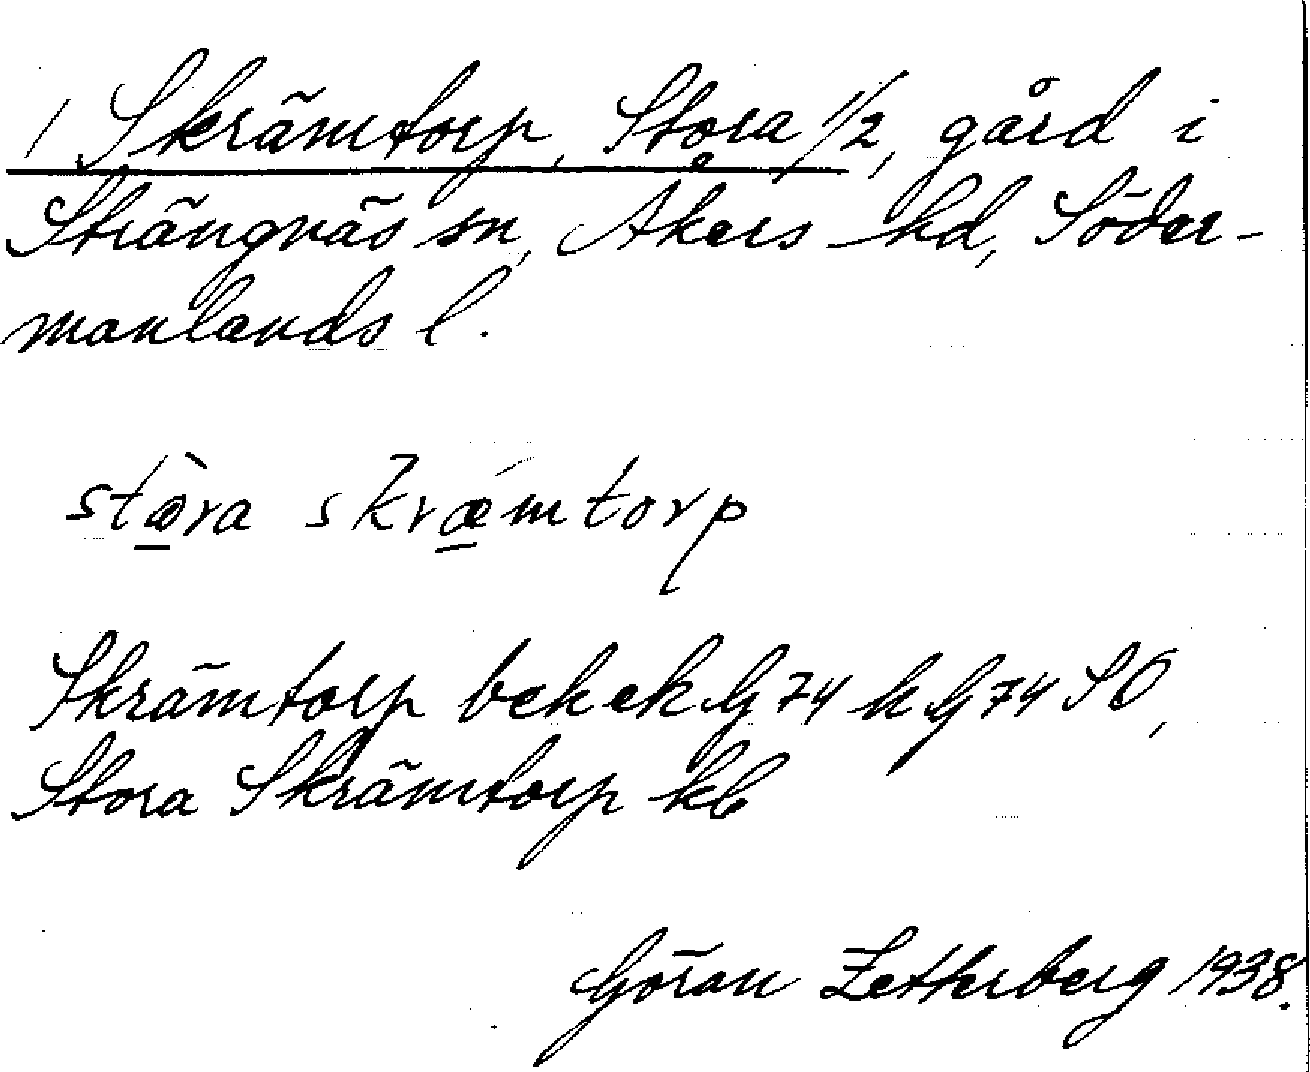 1 Skrämtorp, Stora 1/2, gård i
Strängnäs sn, Åkers hd, Söder-
manlands l.
stæ̀ra skrǽmtorp
Skrämtorp bek ek G 74 h G 74 SO,
Stora Skrämtorp kb
Göran Zetterberg 1938.